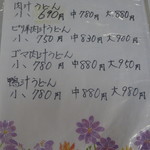 肉汁うどん
小、690円 中780円 大、880円
ピリ辛肉汁うどん
小、750円 中830円 大900円
ゴマ肉汁うどん
小、780円 中880円 大950円
鴨汁うどん
小、780円 中880円 大980円